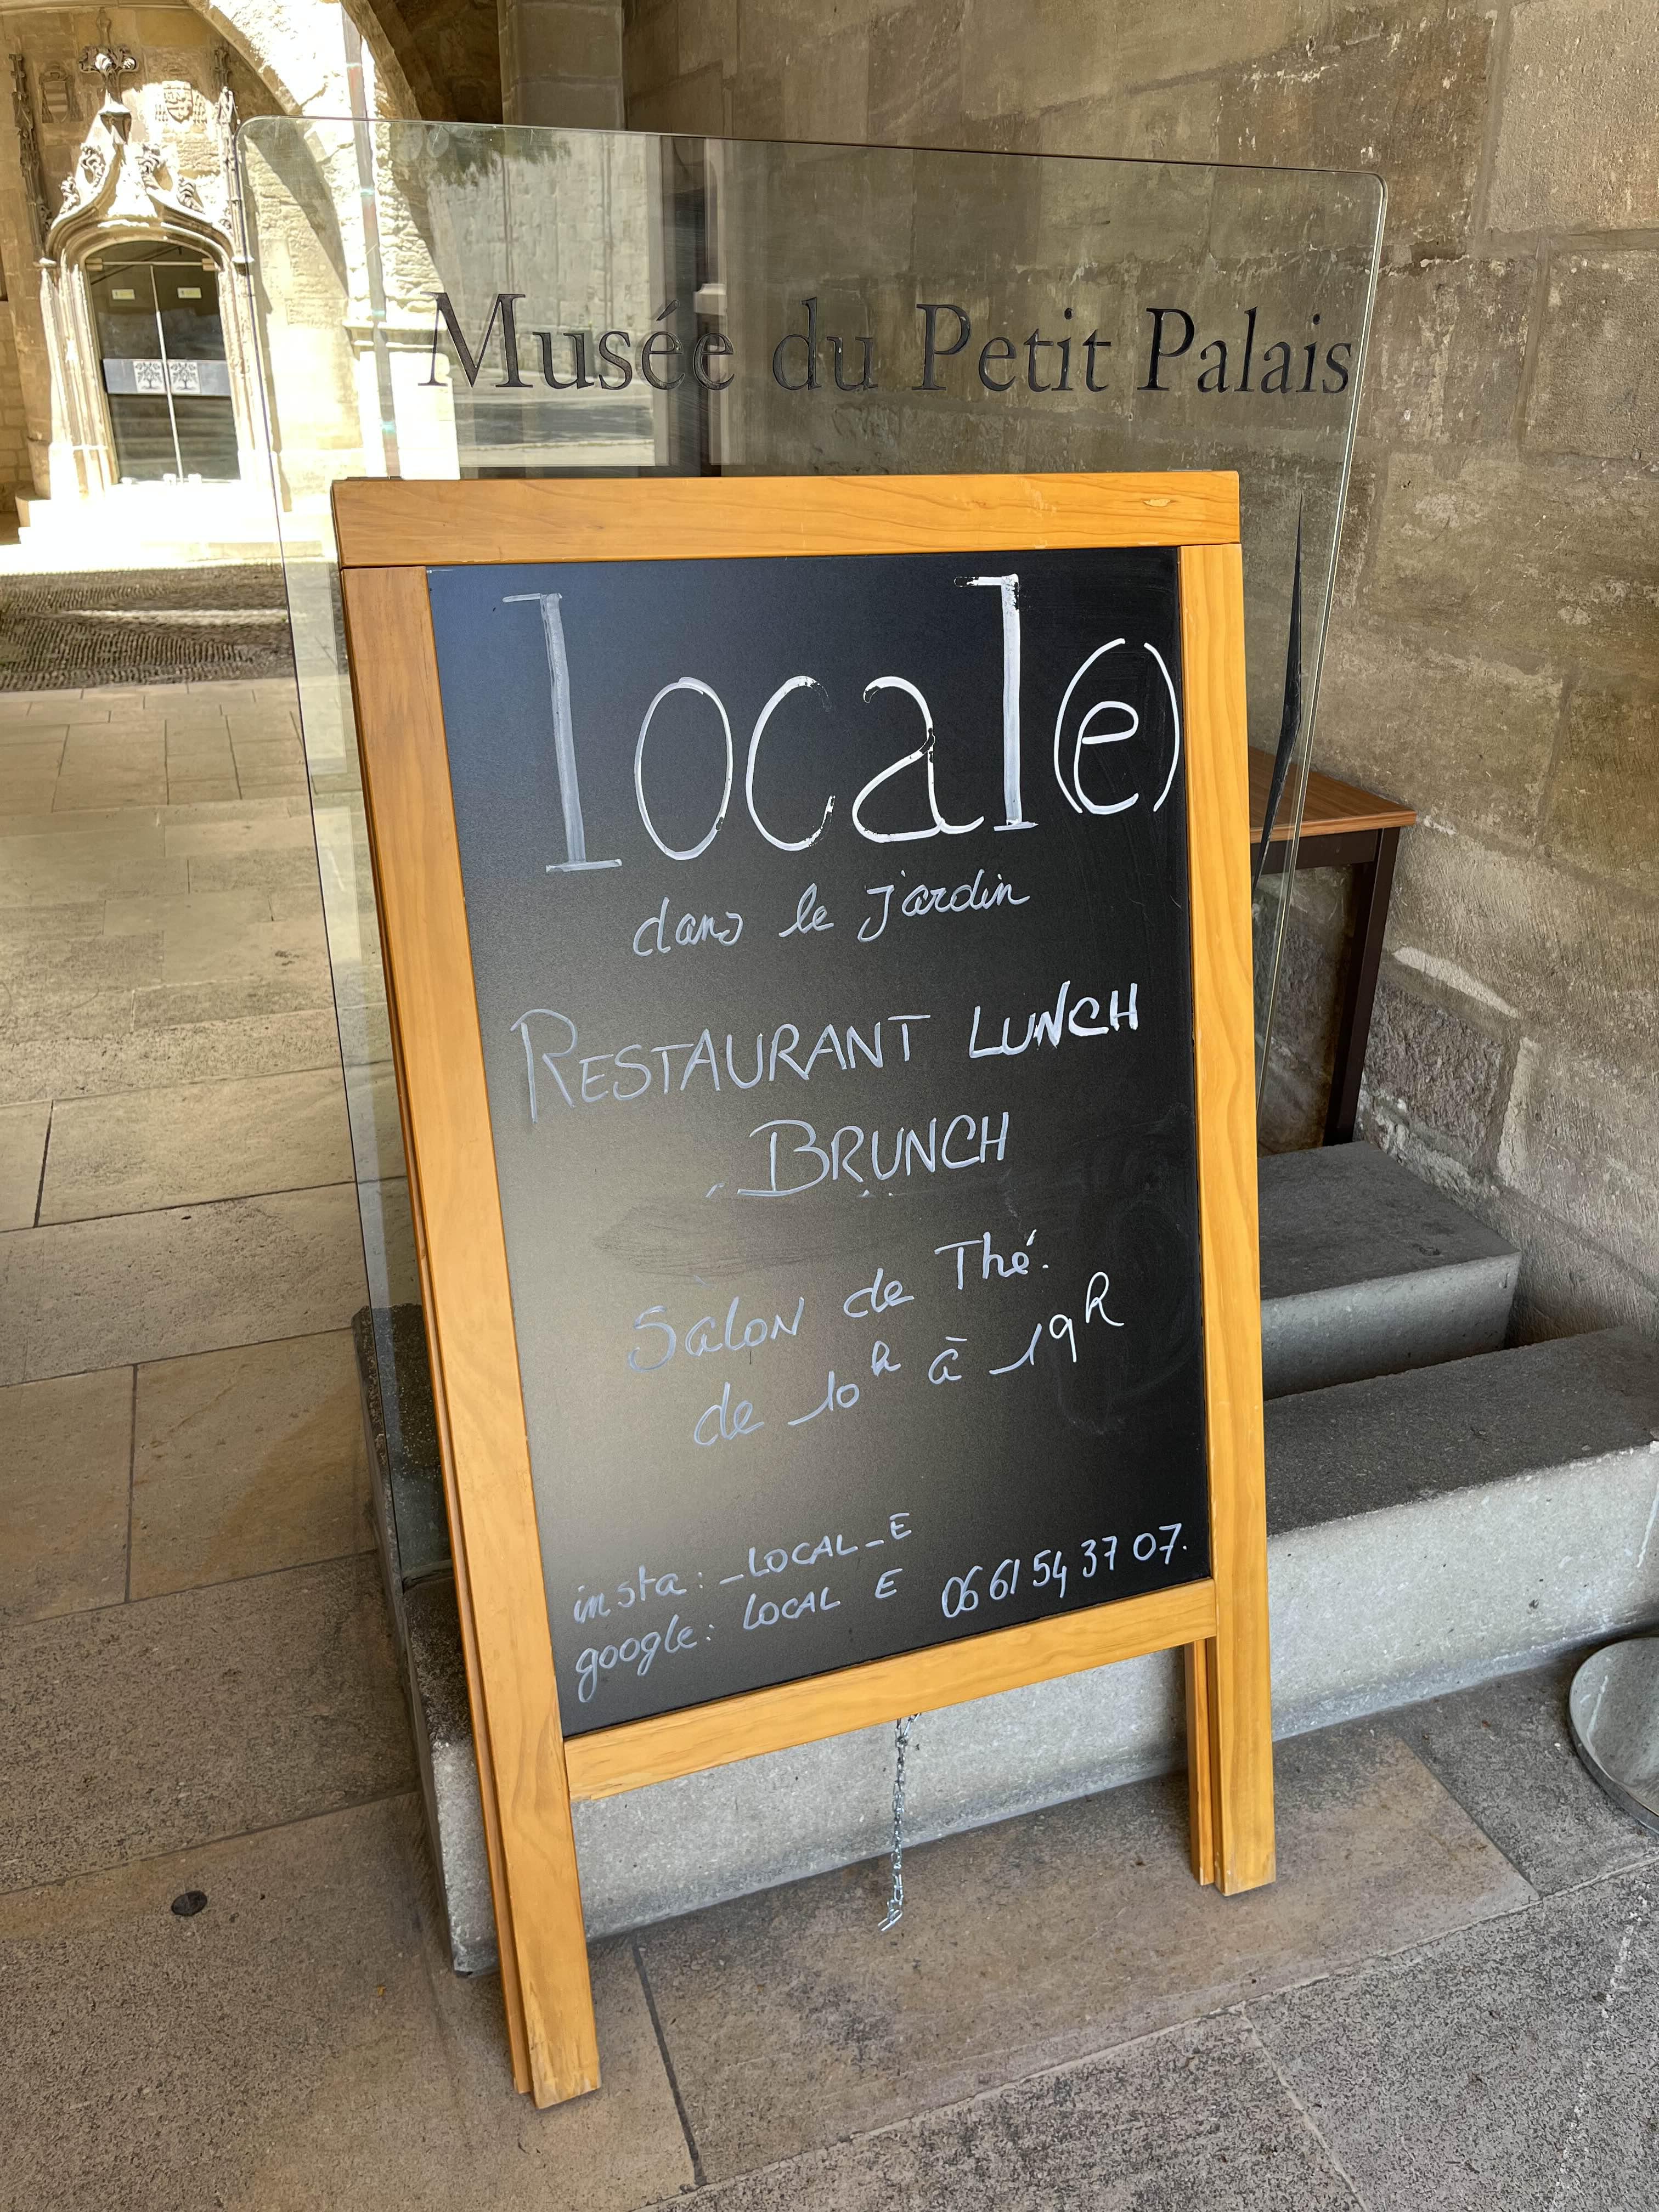 Musée du Petit Palais
local(e)
dans le jardin
RESTAURANT LUNCH
BRUNCH
Salon de Thé.
de 10h à 19h
insta: _LOCAL_E
google: LOCAL E 06 61 54 37 07.